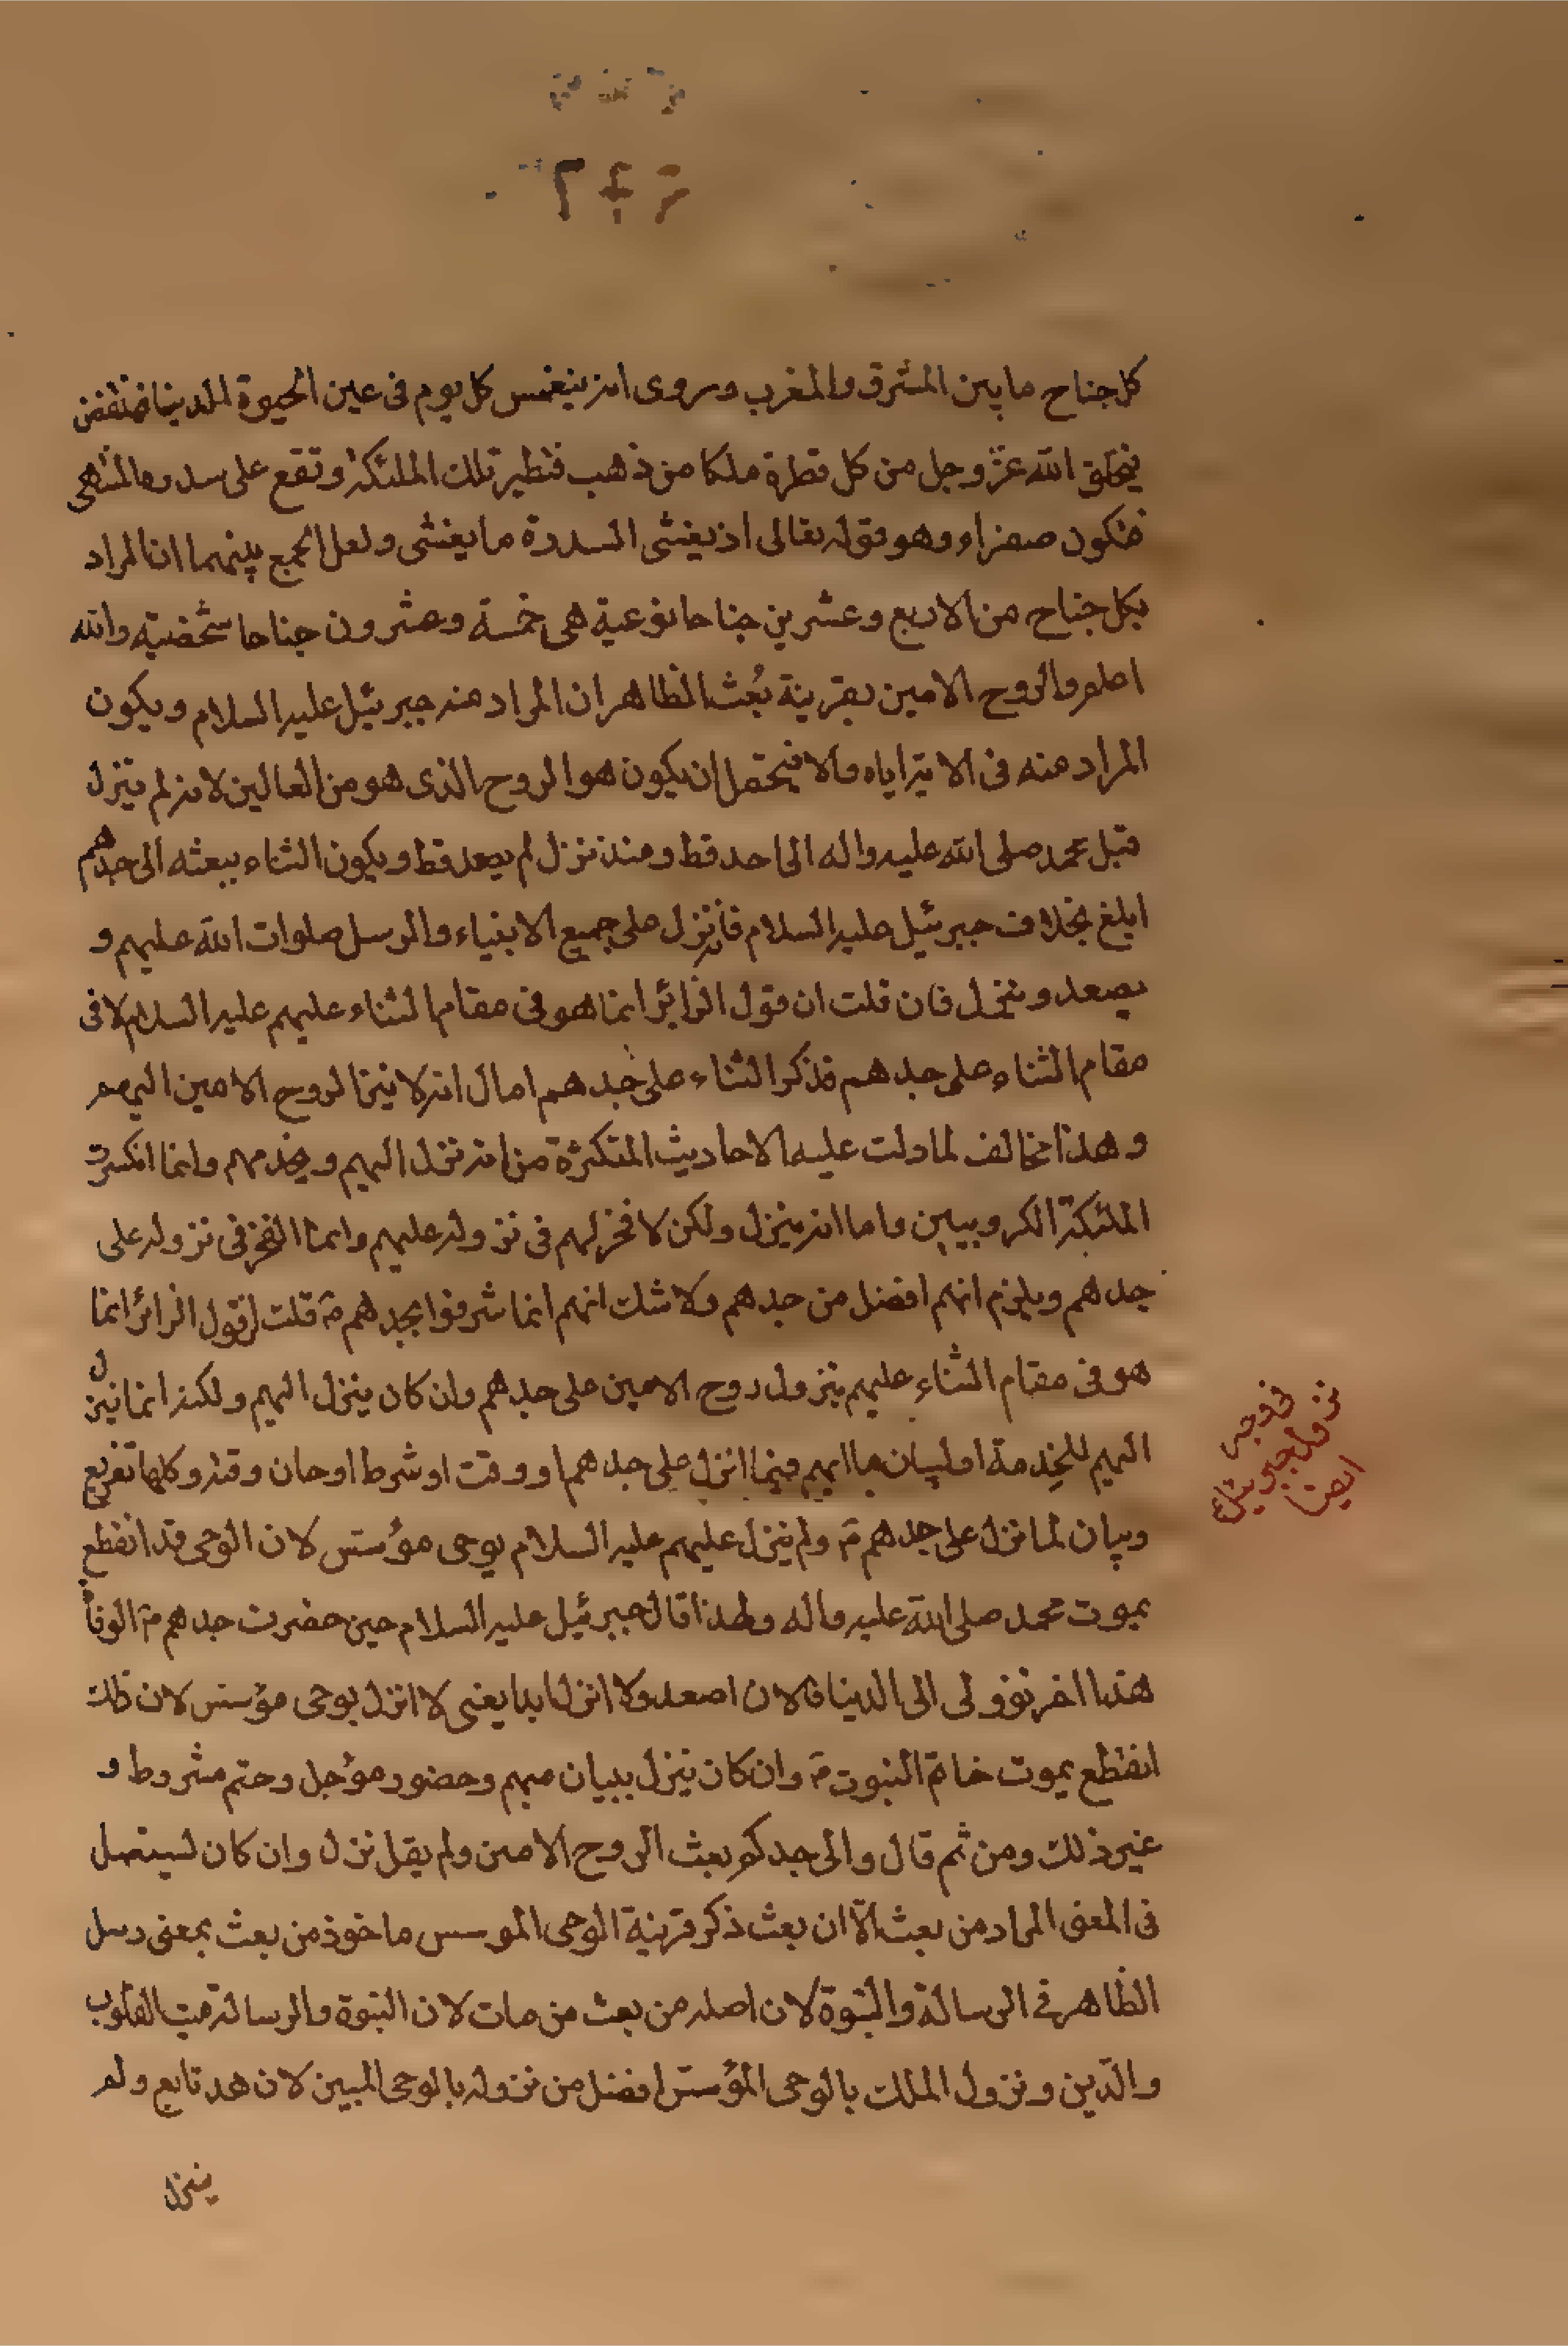 كل جناح ما بين المشرق والمغرب وروى انه ينغمس كل يوم فى عين الحيوة للدينا فينتفض
فيخلق الله عزّ وجل من كل قطرة ملكا من ذهب فتطير تلك الملئكة وتقع على سدرة المنتهى
فتكون صفراء وهو قوله تعالى اذ يغشى السدرة ما يغشى ولعل الجمع بينهما ان المراد
بكل جناح من الاربع وعشرين جناحا نوعية هى خمسة وعشرون جناحا شخصيّة والله
اعلم والروح الامين بقرينة بُعث الظاهر ان المراد منه جبرئيل عليه السلام ويكون
المراد منه فى الاية اياه والا فيحتمل ان يكون هو الروح الذى هو من العالين لانه لم ينزل
قبل محمد صلى الله عليه واله الى احد قط ومنذ نزل لم يصعد قط ويكون الثناء ببعثه الى جدهم
ابلغ بخلاف جبرئيل عليه السلام فانه نزل على جميع الانبياء والرسل صلوات الله عليهم و
يصعد وينزل فان قلت ان قول الزائر انما هو فى مقام الثناء عليهم عليه السلام لا فى
مقام الثناء على جدهم فذكر الثناء على جدهم امال انه لا ينزل الروح الامين اليهم
وهذا مخالف لما دلت عليه الاحاديث المتكثرة من انه نزل اليهم ويخدمهم وانما انكسرت
الملئكة الكروبيين واما انه ينزل ولكن لا فخر لهم فى نزوله عليهم وانما الفخر فى نزوله على
جدهم ويلزم انهم افضل من جدهم ولا شك انهم انما شرفوا بجدهم ص قلت ان قول الزائر انما
هو فى مقام الثناء عليهم بنزول روح الامين على جدهم وان كان ينزل اليهم ولكنه انما ينزل
اليهم للخدمة او لبيان ما ابهم فيما انزل على جدهم او وقت او شرط او حان وقته وكلها تفريع
وبيان لما نزل على جدهم ص ولم ينزل عليهم عليه السلام بوحى مؤسّس لان الوحى قد انقطع
بموت محمد صلى الله عليه واله ولهذا قال جبرئيل عليه السلام حين حضرت جدهم ص الوفاة
هذا اخر نزولى الى الدنيا فالان اصعد ولا انزل ابدا يعنى لا انزل بوحى مؤسس لان ذلك
انقطع بموت خاتم النبوت ص وان كان ينزل ببيان مبهم وحضور مؤجل وحتم مشروط و
غير ذلك ومن ثم قال والى جدكم بعث الروح الامين ولم يقل نزل وان كان يستعمل
فى المعنى المراد من بعث الّا ان بعث ذكر قرينة الوحى الموسس ماخوذ من بعث بمعنى رسل
الظاهر فى الرسالة والنبوة لان اصله من بعث من مات لان النبوة والرسالة ميت القلوب
والدّين ونزول الملك بالوحى المؤسّس افضل من نزوله بالوحى المبين لان هذ تابع ولم
ينزل
فى وجه
نزول جبرئيل
ايضا